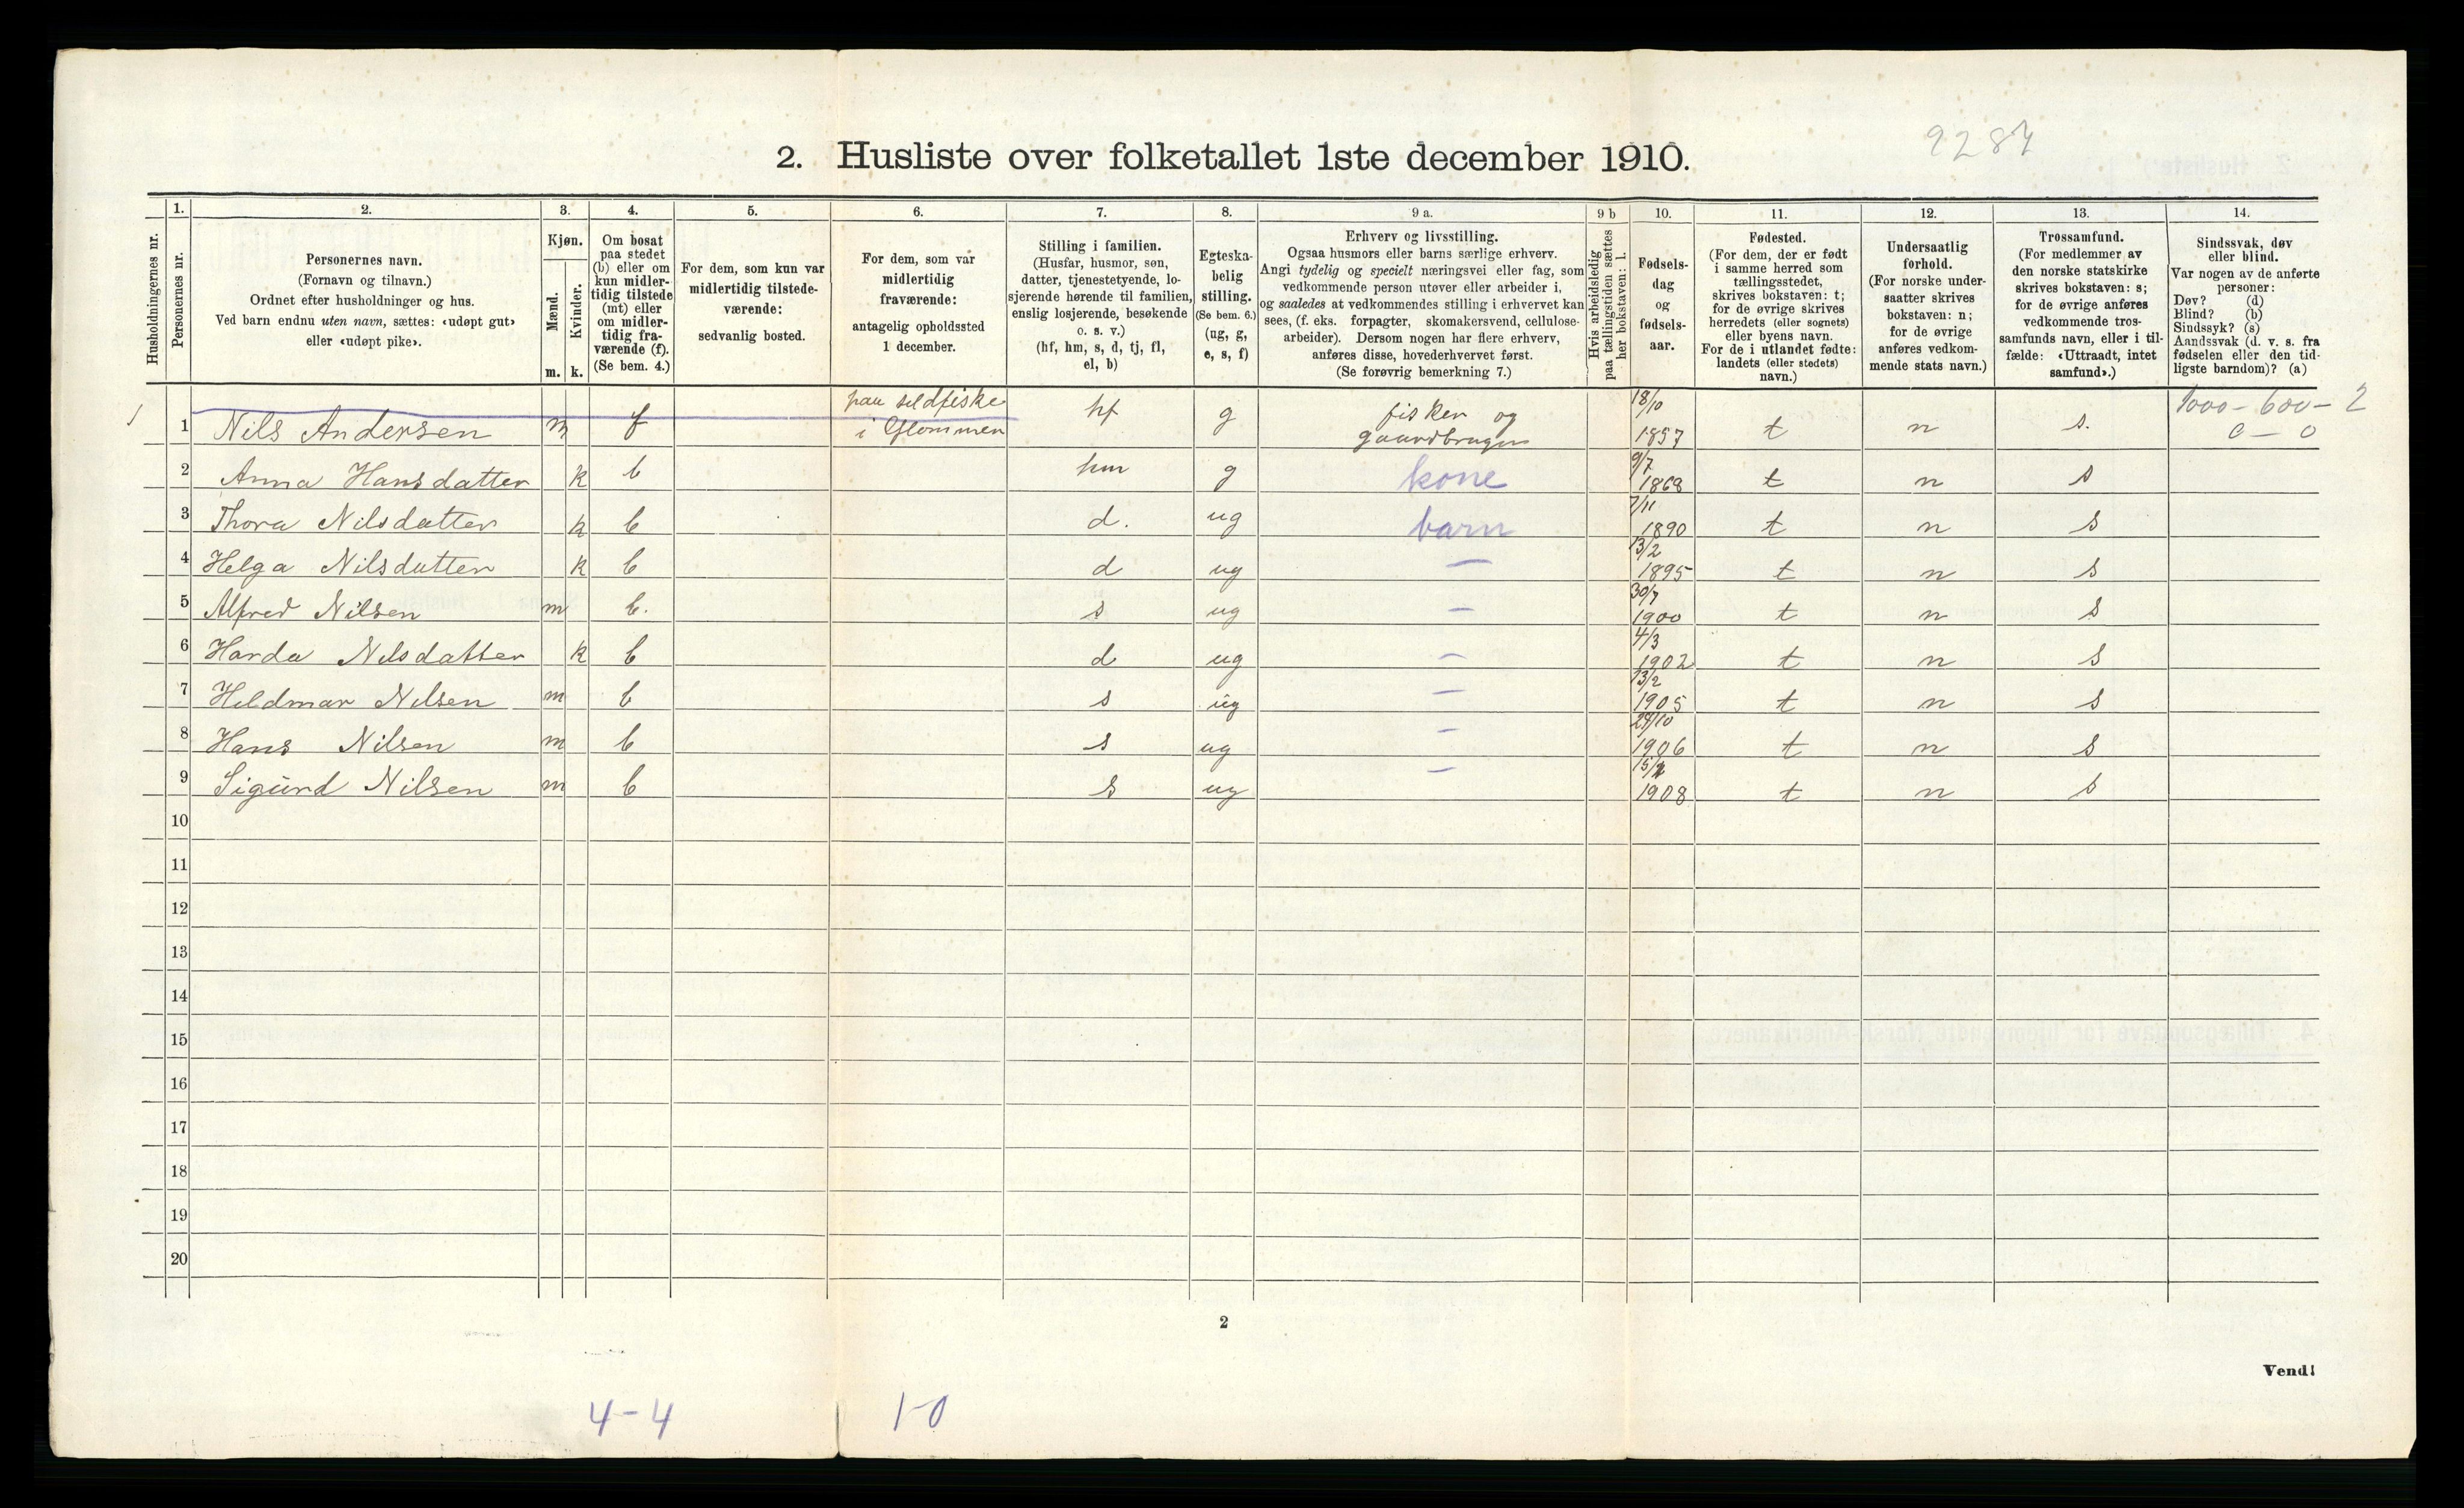 9287
2. Husliste over folketallet 1ste december 1910.
Husholdningernes nr.
1.
Personernes nr.
2.
Personernes navn.
(Fornavn og tilnavn.)
Ordnet efter husholdninger og hus.
Ved barn endnu uten navn, sættes: «udøpt gut»
eller «udøpt pike».
3.
Kjøn.
Mænd.
Kvinder.
m. k.
4.
Om bosat
paa stedet
(b) eller om
kun midler-
tidig tilstede
(mt) eller
om midler-
tidig fra-
værende (f).
(Se bem. 4.)
5.
For dem, som kun var
midlertidig tilstede-
værende:
sedvanlig bosted.
6.
For dem, som var
midlertidig
fraværende:
antagelig opholdssted
1 december.
7.
Stilling i familien.
(Husfar, husmor, søn,
datter, tjenestetyende, lo-
sjerende hørende til familien,
enslig losjerende, besøkende
o. s. v.)
(hf, hm, s, d, tj, fl,
el, b)
8.
Egteska-
belig
stilling.
(Se bem. 6.)
(ug, g,
e, s, f)
9 a.
Erhverv og livsstilling.
Ogsaa husmors eller barns særlige erhverv.
Angi tydelig og specielt næringsvei eller fag, som
vedkommende person utøver eller arbeider i,
og saaledes at vedkommendes stilling i erhvervet kan
sees, (f. eks. forpagter, skomakersvend, cellulose-
arbeider). Dersom nogen har flere erhverv,
anføres disse, hovederhvervet først.
(Se forøvrig bemerkning 7.)
9 b
Hvis arbeidsledig
paa tællingstiden sættes
her bokstaven: l.
10.
Fødsels-
dag
og
fødsels-
aar.
11.
Fødested.
(For dem, der er født
i samme herred som
tællingsstedet,
skrives bokstaven: t;
for de øvrige skrives
herredets (eller sognets)
eller byens navn.
For de i utlandet fødte:
landets (eller stedets)
navn.)
12.
Undersaatlig
forhold.
(For norske under-
saatter skrives
bokstaven: n;
for de øvrige
anføres vedkom-
mende stats navn.)
13.
Trossamfund.
(For medlemmer av
den norske statskirke
skrives bokstaven: s;
for de øvrige anføres
vedkommende tros-
samfunds navn, eller i til-
fælde: «Uttraadt, intet
samfund».)
14.
Sindssvak, døv
eller blind.
Var nogen av de anførte
personer:
Døv? (d)
Blind? (b)
Sindssyk? (s)
Aandssvak (d. v. s. fra
fødselen eller den tid-
ligste barndom)? (a)
paa sildfiske 18/10 1000-600-2
1 1 Nils Andersen m f i Glommen hf g fisker og gaardbruger 1857 t n s. 0-0
2 Anna Hansdatter k b hm g kone 9/7 1868 t n s
3 Thora Nilsdatter k b d. ug barn 7/11 1890 t n s
4 Helga Nilsdatter k b d ug — 13/2 1895 t n s
5 Alfred Nilsen m b. s ug — 30/7 1900 t n s
6 Harda Nilsdatter k b d ug — 4/3 1902 t n s
7 Hildmar Nilsen m b s ug — 13/2 1905 t n s
8 Hans Nilsen m b s ug — 1906 t n s
9 Sigurd Nilsen m b s ug — 1908 t n s
10
11
12
13
14
15
16
17
18
19
20
2
Vend!
4-4 1-0